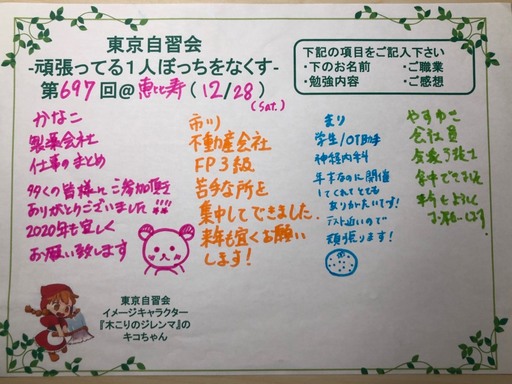 東京自習会
-頑張ってる1人ぼっちをなくす-
第697回@恵比寿(12/28)
(Sat.)
下記の項目をご記入下さい
・下のお名前 ・ご職業
・勉強内容 ・ご感想
かなこ
製薬会社
仕事のまとめ
多くの皆様にご参加頂き
ありがとうございました!!!
2020年も宜しく
お願い致します
市川
不動産会社
FP3級
苦手な所を
集中してできました.
来年も宜くお願い
します!
まり
学生/OT助手
神経内科
年末なのに開催
してくれてとても
ありがたいです!
テスト近いので
頑張ります!
やすゆき
会社員
集中できました
お願いします
東京自習会
イメージキャラクター
『木こりのジレンマ』の
キコちゃん